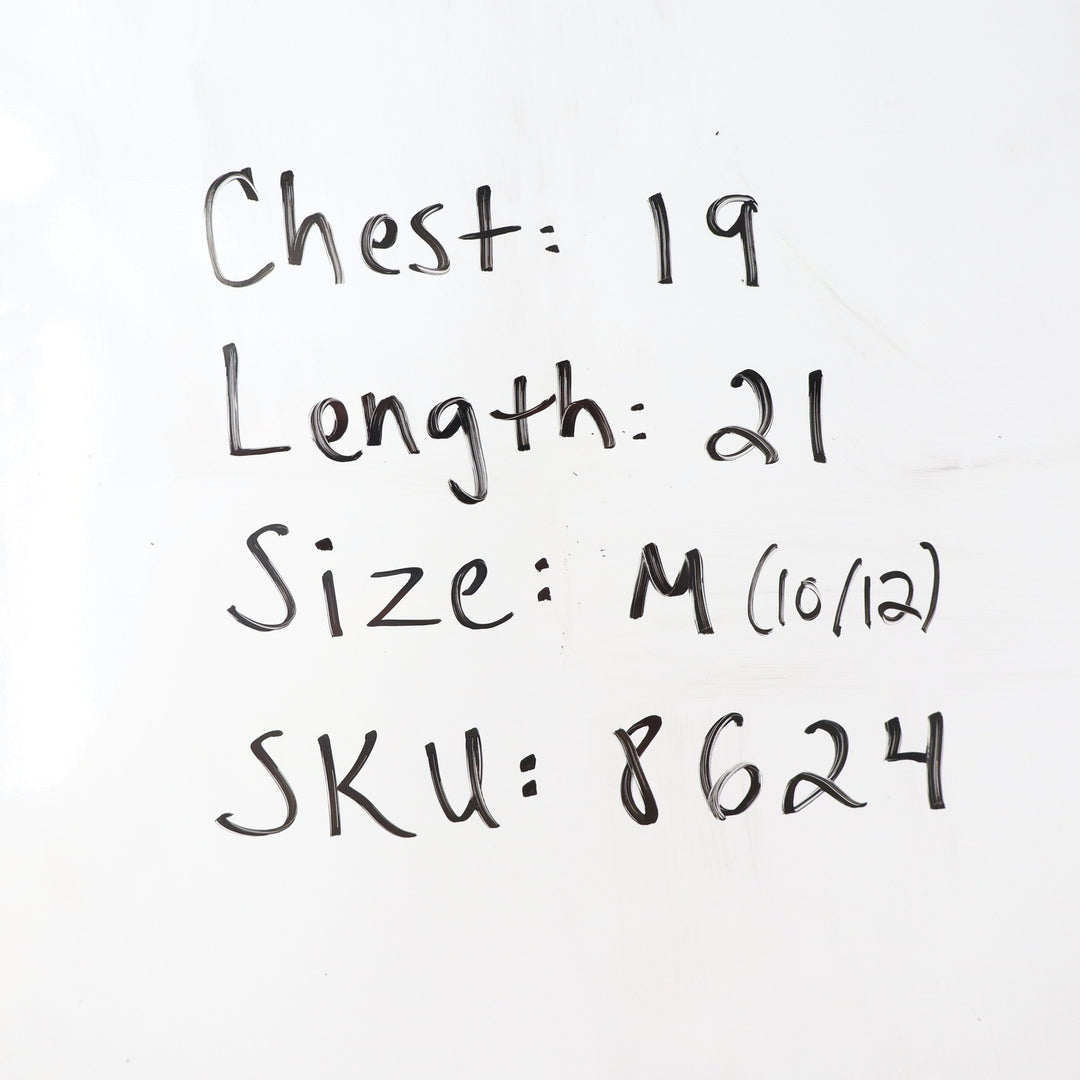 Chest: 19
Length: 21
Size: M (10/12)
SKU: 8624